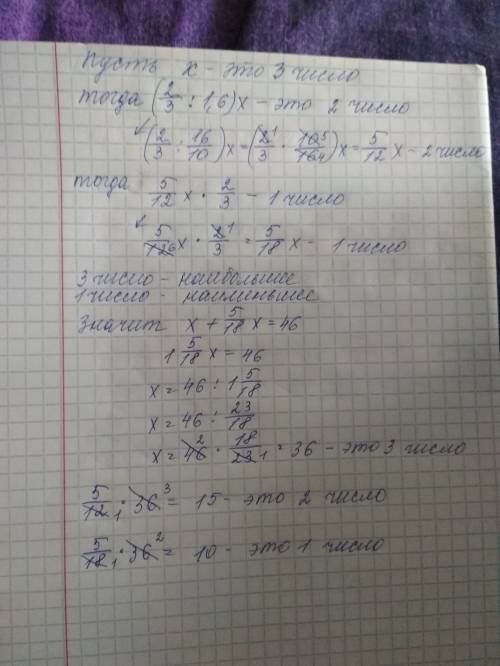 Пусть x - это 3 число
тогда (2/3 : 1,6)x - это 2 число
(2/3 : 16/10)x = (2¹/3 · 10⁵/16₄)x = 5/12 x - 2 число
тогда 5/12 x · 2/3 - 1 число
5/12₆ x · 2¹/3 = 5/18 x - 1 число
3 число - наибольшее
1 число - наименьшее
Значит x + 5/18 x = 46
1 5/18 x = 46
x = 46 : 1 5/18
x = 46 : 23/18
x = 46² · 18/23₁ = 36 - это 3 число
5/12₁ · 36³ = 15 - это 2 число
5/18₁ · 36² = 10 - это 1 число